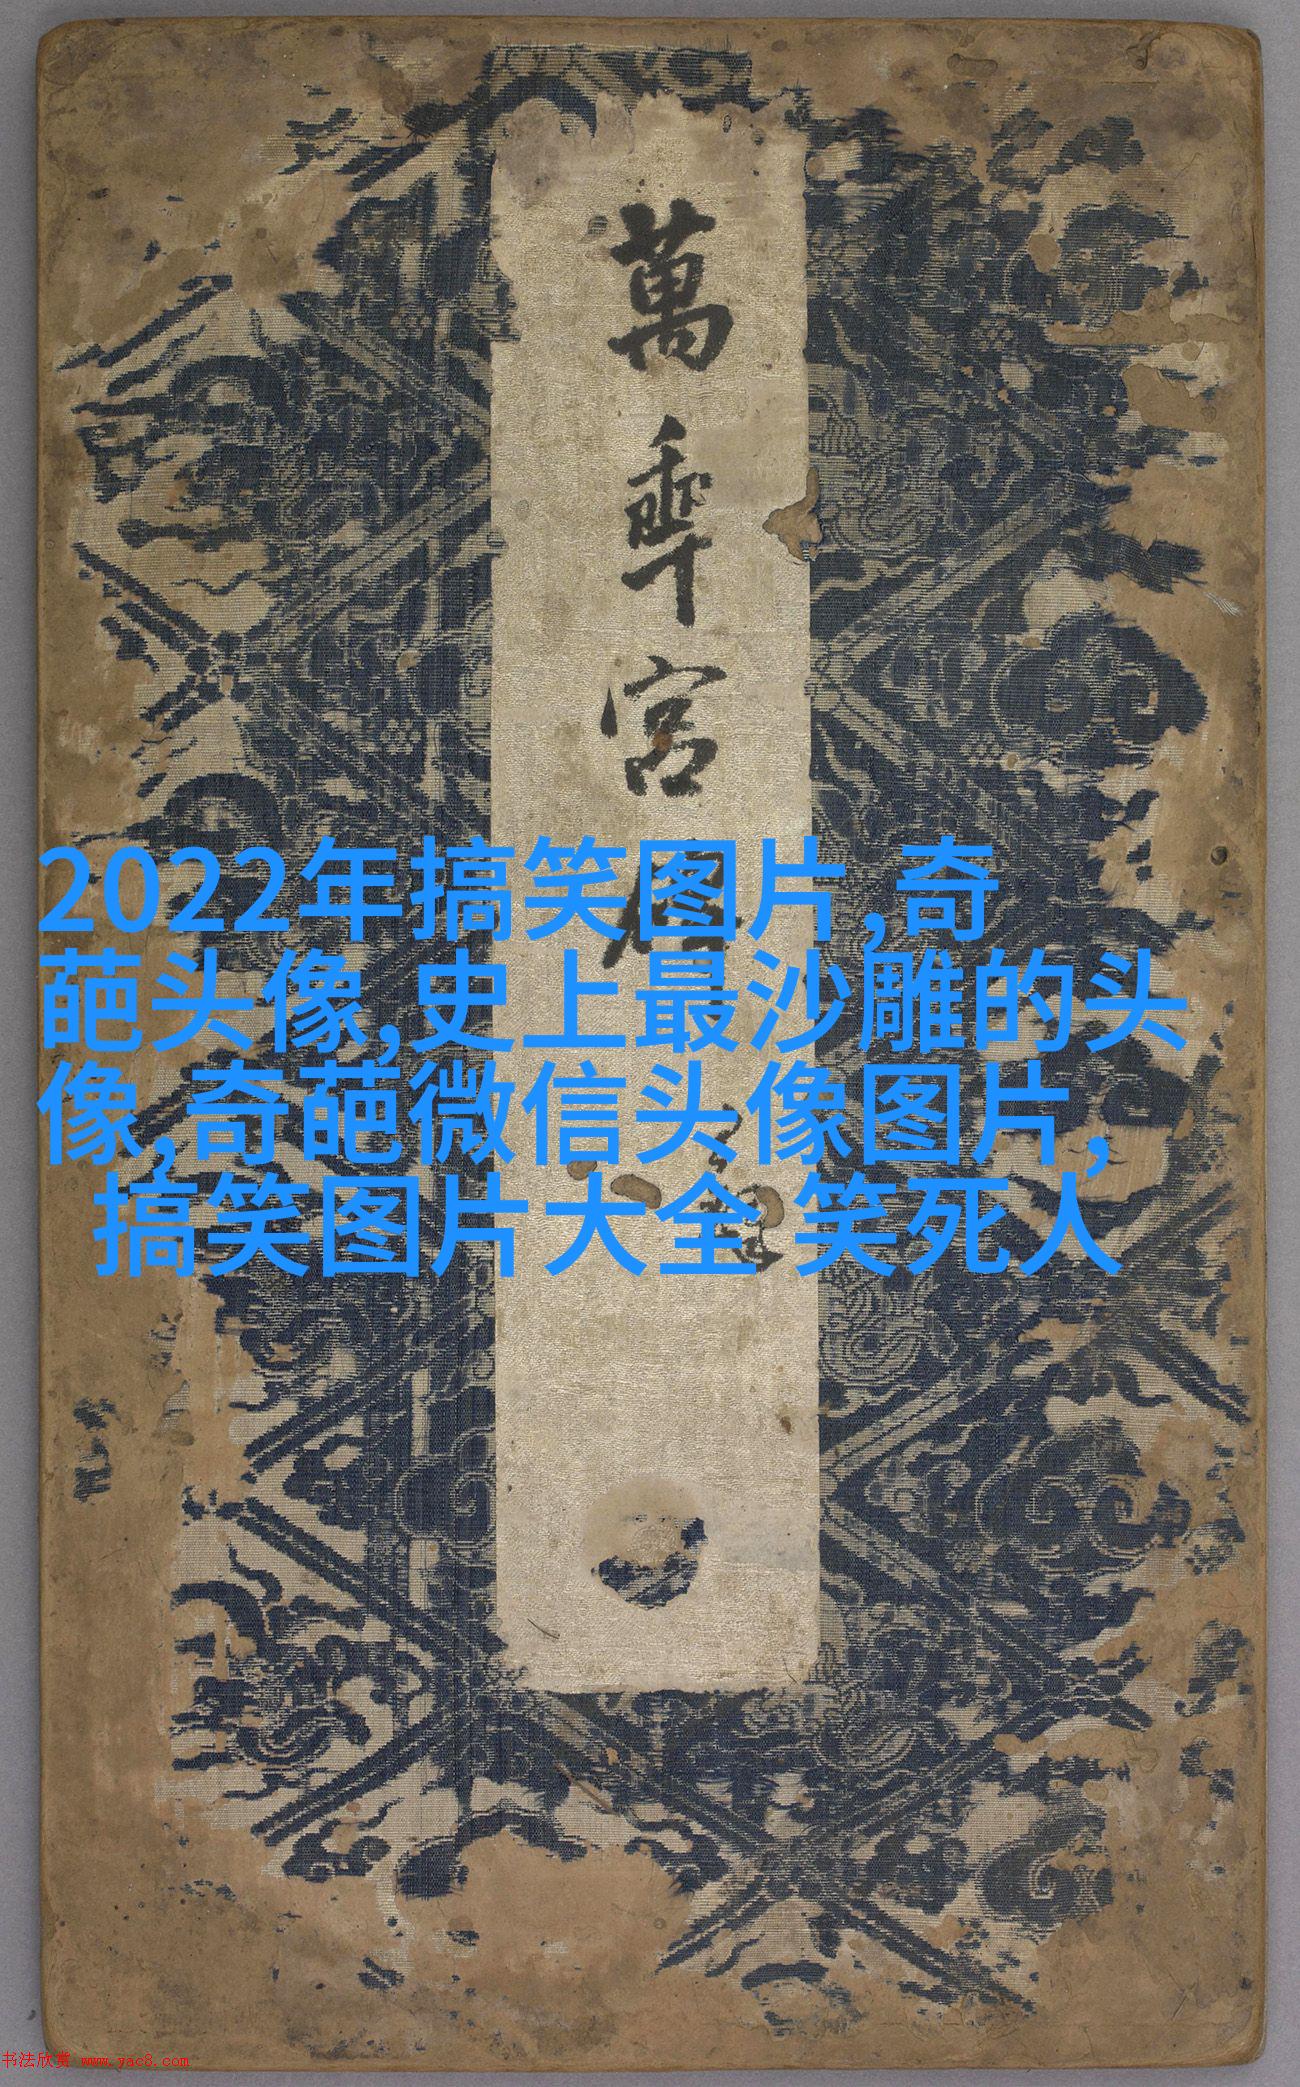 萬乘宮
2022年搞笑图片,奇
葩头像,史上最沙雕的头
像,奇葩微信头像图片,
搞笑图片大全 笑死人
书法欣赏 www.yac8.com